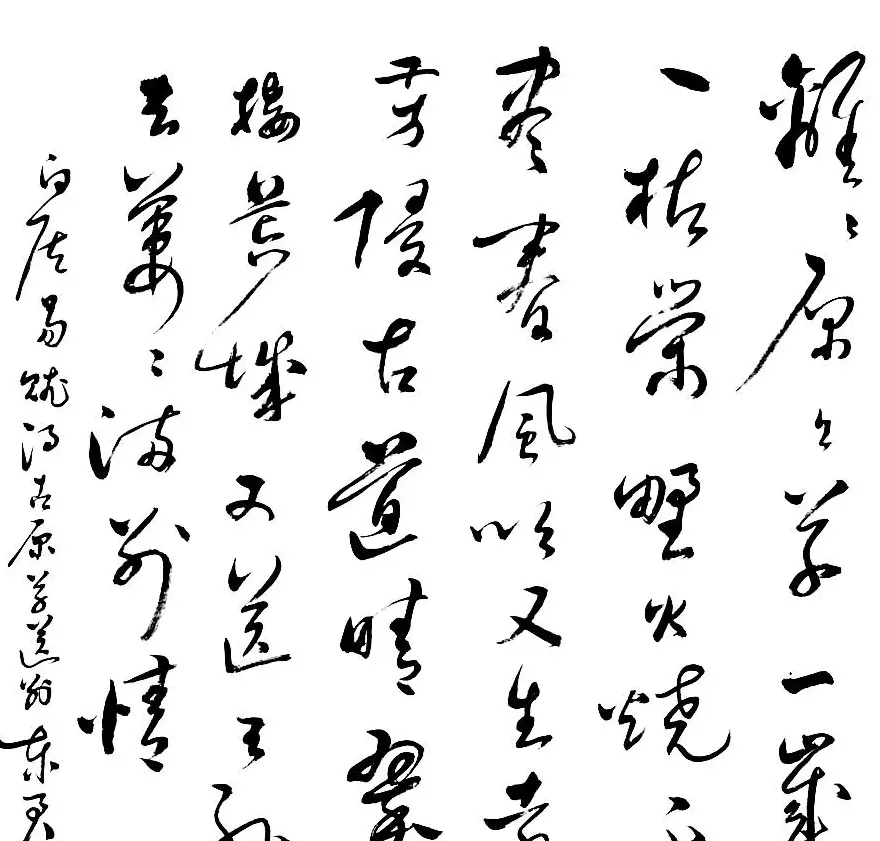 離〻原上草一歲
一枯榮野火燒不
盡春風吹又生遠
芳侵古道晴翠
接荒城又送王孫
去萋〻滿別情
白居易賦得古原草送別東吳